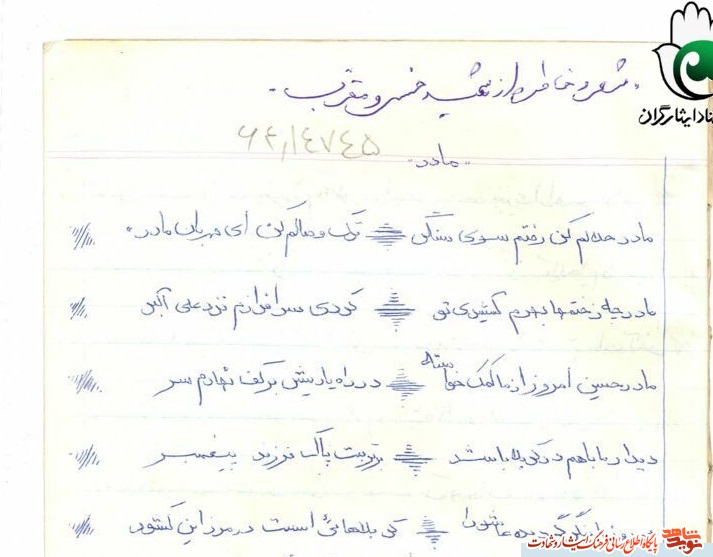 شعر و خاطره از شهید خسرو مقرب
ناد ایثارگران
۶۲/۱۴۷۴۵
مادر
مادر حلالم کن رفتم سوی سنگر ترک وصالم کن ای مهربان مادر
مادر چه زحمتها بهرم کشیدی تو کردی سرافرازم نزد علی اکبر
مادر حسین امروز از ما کمک خواسته در راه یاریش بر کف نهادم سر
دیدار ما باهم در کربلا باشد بر تربت پاک فرزند پیغمبر
گردیده عاشورا کربلائی است در مرز این کشور
نوید شاهد
پایگاه اطلاع رسانی فرهنگ ایثار و شهادت